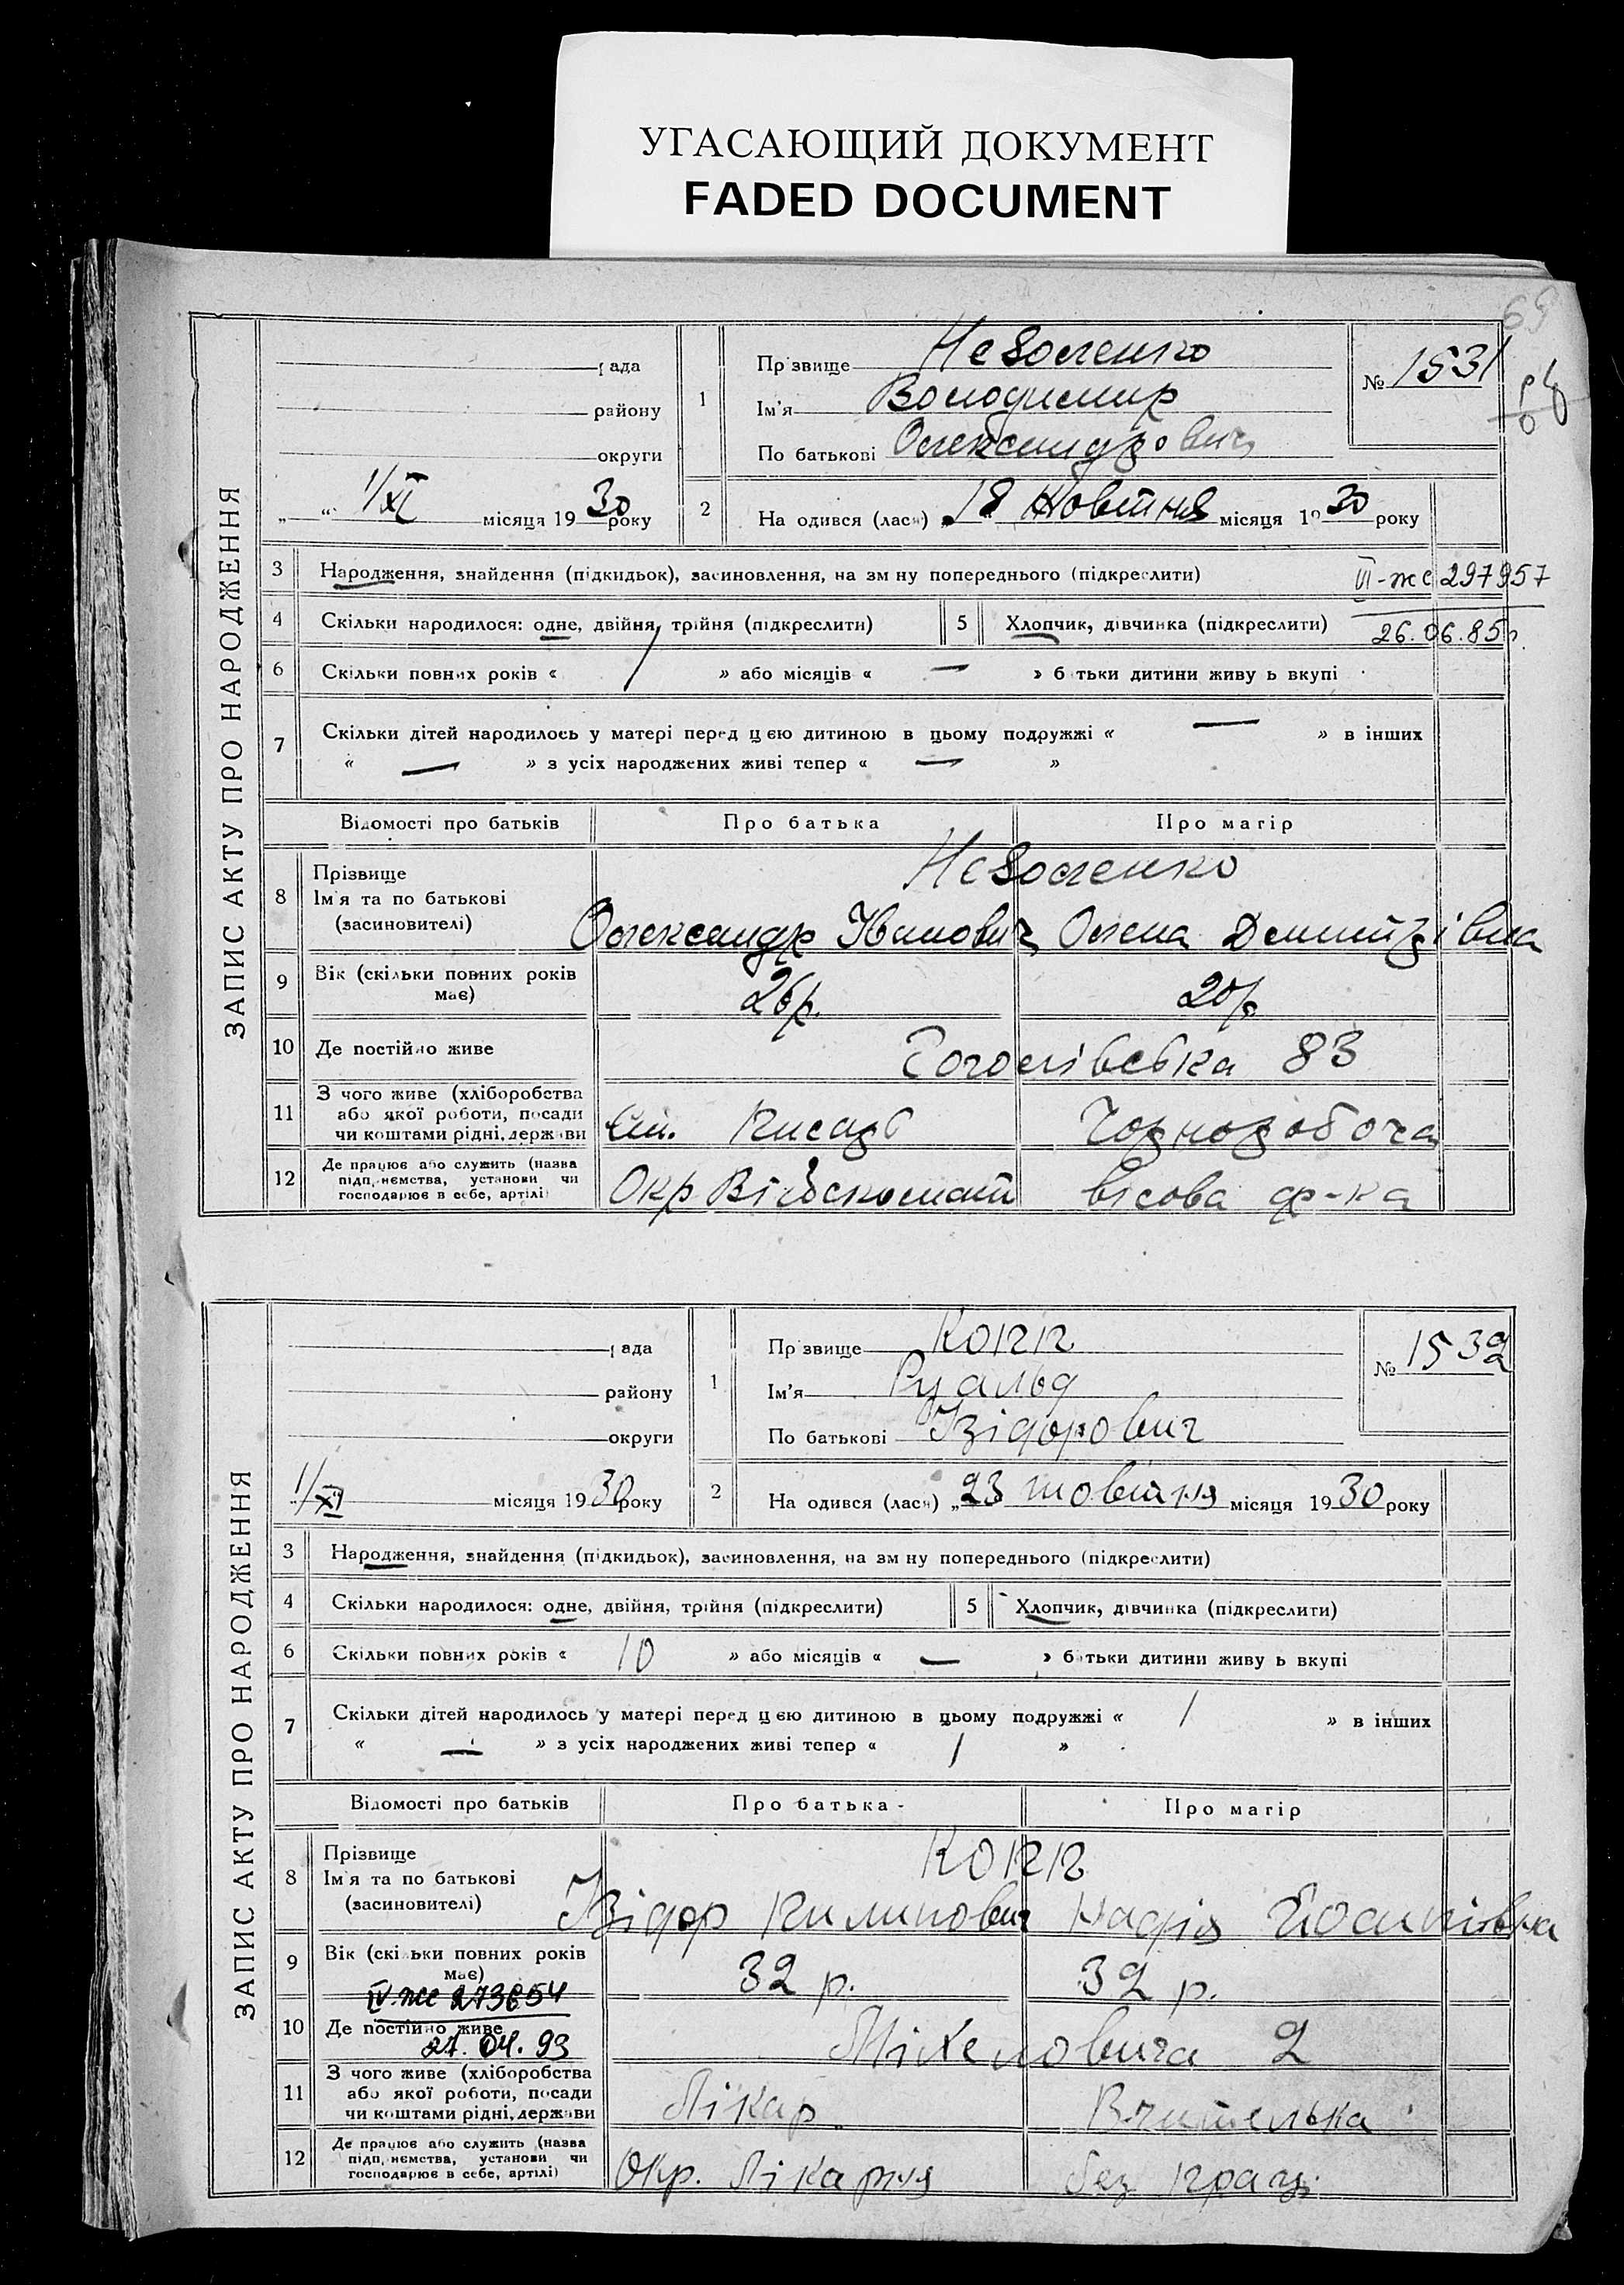 УГАСАЮЩИЙ ДОКУМЕНТ
FADED DOCUMENT
ЗАПИС АКТУ ПРО НАРОДЖЕННЯ
рада
району
округи
„ “ 1/XI місяця 1930 року
1
Прізвище
Ім'я Володимир
По батькові Олександрович
№ 1531
2
Народився (лася) 18 Жовтня місяця 1930 року
3 Народження, знайдення (підкидьок), засиновлення, на зміну попереднього (підкреслити)
VI-жс 297957
4 Скільки народилося: одне, двійня, трійня (підкреслити)
5 Хлопчик, дівчинка (підкреслити)
26.06.85р.
6 Скільки повних років « 1 » або місяців « — » батьки дитини живуть вкупі
7 Скільки дітей народилось у матері перед цією дитиною в цьому подружжі « — » в інших
« — » з усіх народжених живі тепер « — »
Відомості про батьків Про батька Про матір
8 Прізвище
Ім'я та по батькові
(засиновителі)
Олександр Іванович Олена Дмитрівна
9 Вік (скільки повних років має) 26р. 20р.
10 Де постійно живе Гоголівська 83
11 З чого живе (хліборобства
або якої роботи, посади
чи коштами рідні, держави
Писарь Чорноробоча
12 Де працює або служить (назва
підприємства, установи чи
господарює в себе, артілі)
Окр Військомат ф-ка
ЗАПИС АКТУ ПРО НАРОДЖЕННЯ
рада
району
округи
1/XI місяця 1930 року
1
Прізвище Копп
Ім'я Руальд
По батькові Ізідорович
№ 1532
2
Народився (лася) „23 жовтня місяця 1930 року
3 Народження, знайдення (підкидьок), засиновлення, на зміну попереднього (підкреслити)
4 Скільки народилося: одне, двійня, трійня (підкреслити)
5 Хлопчик, дівчинка (підкреслити)
6 Скільки повних років « 10 » або місяців « — » батьки дитини живуть вкупі
7 Скільки дітей народилось у матері перед цією дитиною в цьому подружжі « 1 » в інших
« — » з усіх народжених живі тепер « 1 »
Відомості про батьків Про батька Про матір
8 Прізвище Копп
Ім'я та по батькові
(засиновителі)
Ізідор Пилипович Надія Йосипівна
9 Вік (скільки повних років
має) 32 р. 32 р.
IV-жс 273654
10 Де постійно живе 2
27.04.93
11 З чого живе (хліборобства
або якої роботи, посади
чи коштами рідні, держави
Лікар Вчителька
12 Де працює або служить (назва
підприємства, установи чи
господарює в себе, артілі)
Окр. Лікарня без праці